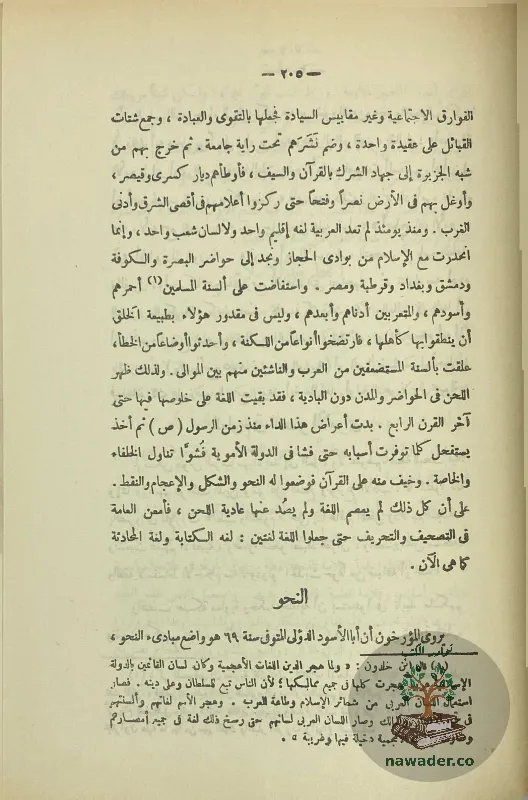 — ٢٠٥ —
الفوارق الاجتماعية وغير مقاييس السيادة فجعلها بالتقوى والعبادة ، وجمع شتات
القبائل على عقيدة واحدة ، وضم نَشَرَهم تحت راية جامعة . ثم خرج بهم من
شبه الجزيرة إلى جهاد الشرك بالقرآن والسيف ، فأوطأهم ديار كسرى وقيصر ،
وأوغل بهم فى الأرض نصراً وفتحاً حتى ركزوا أعلامهم فى أقصى الشرق وأدنى
الغرب . ومنذ يومئذ لم تعد العربية لغة إقليم واحد ولا لسان شعب واحد ، وإنما
انحدرت مع الإسلام من بوادى الحجاز ونجد إلى حواضر البصرة والكوفة
ودمشق وبغداد وقرطبة ومصر . واستفاضت على ألسنة المسلمين (١) أحمرهم
وأسودهم ، والمتعربين أدناهم وأبعدهم ، وليس فى مقدور هؤلاء بطبيعة الخلق
أن ينطقوا بها كأهلها ، فارتضخوا أنواعاً من اللكنة ، وأحدثوا أوضاعاً من الخطأ ،
علقت بألسنة المستضعفين من العرب والناشئين منهم بين الموالى . ولذلك ظهر
اللحن فى الحواضر والمدن دون البادية ، فقد بقيت اللغة على خلوصها فيها حتى
آخر القرن الرابع . بدت أعراض هذا الداء منذ زمن الرسول (ص) ثم أخذ
يستفحل كلما توفرت أسبابه حتى فشا فى الدولة الأموية فُشوًّا تناول الخلفاء
والخاصة . وخيف منه على القرآن فوضعوا له النحو والشكل والإعجام والنقط .
على أن كل ذلك لم يعصم اللغة ولم يصُد عنها عادية اللحن ، فأمعن العامة
فى التصحيف والتحريف حتى جعلوا اللغة لغتين : لغة الكتابة ولغة المحادثة
كما هى الآن .
النحو
يروى المؤرخون أن أبا الأسود الدؤلى المتوفى سنة ٦٩ هو واضع مبادىء النحو ،
(١) ابن خلدون : « ولما هجر الدين اللغات الأعجمية وكان لسان القائمين بالدولة
هجرت كلها فى جميع ممالكها ؛ لأن الناس تبع للسلطان وعلى دينه . فصار
استعمال اللسان العربى من شعائر الإسلام وطاعة العرب . وهجر الأمم لغاتهم وألسنتهم
فى وصار اللسان العربى لسانهم حتى رسخ ذلك لغة فى جميع أمصارهم
دخيلة فيها وغريبة » .
نوادر الكتب
nawader.co